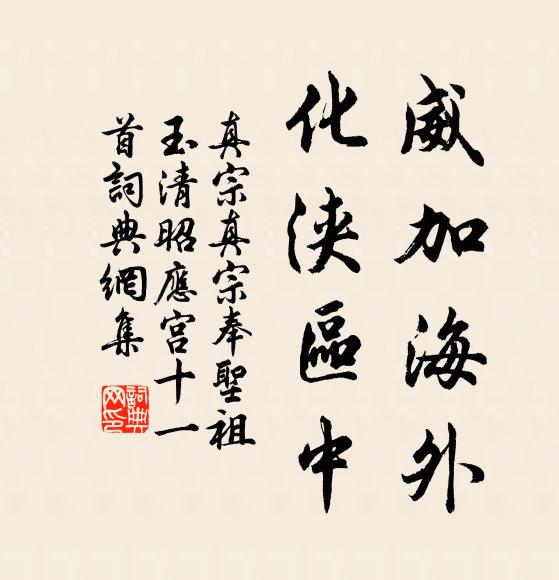 威加海外
化浹區中
真宗真宗奉聖祖
玉清昭應宮十一
首詞典網集
詞典
网印